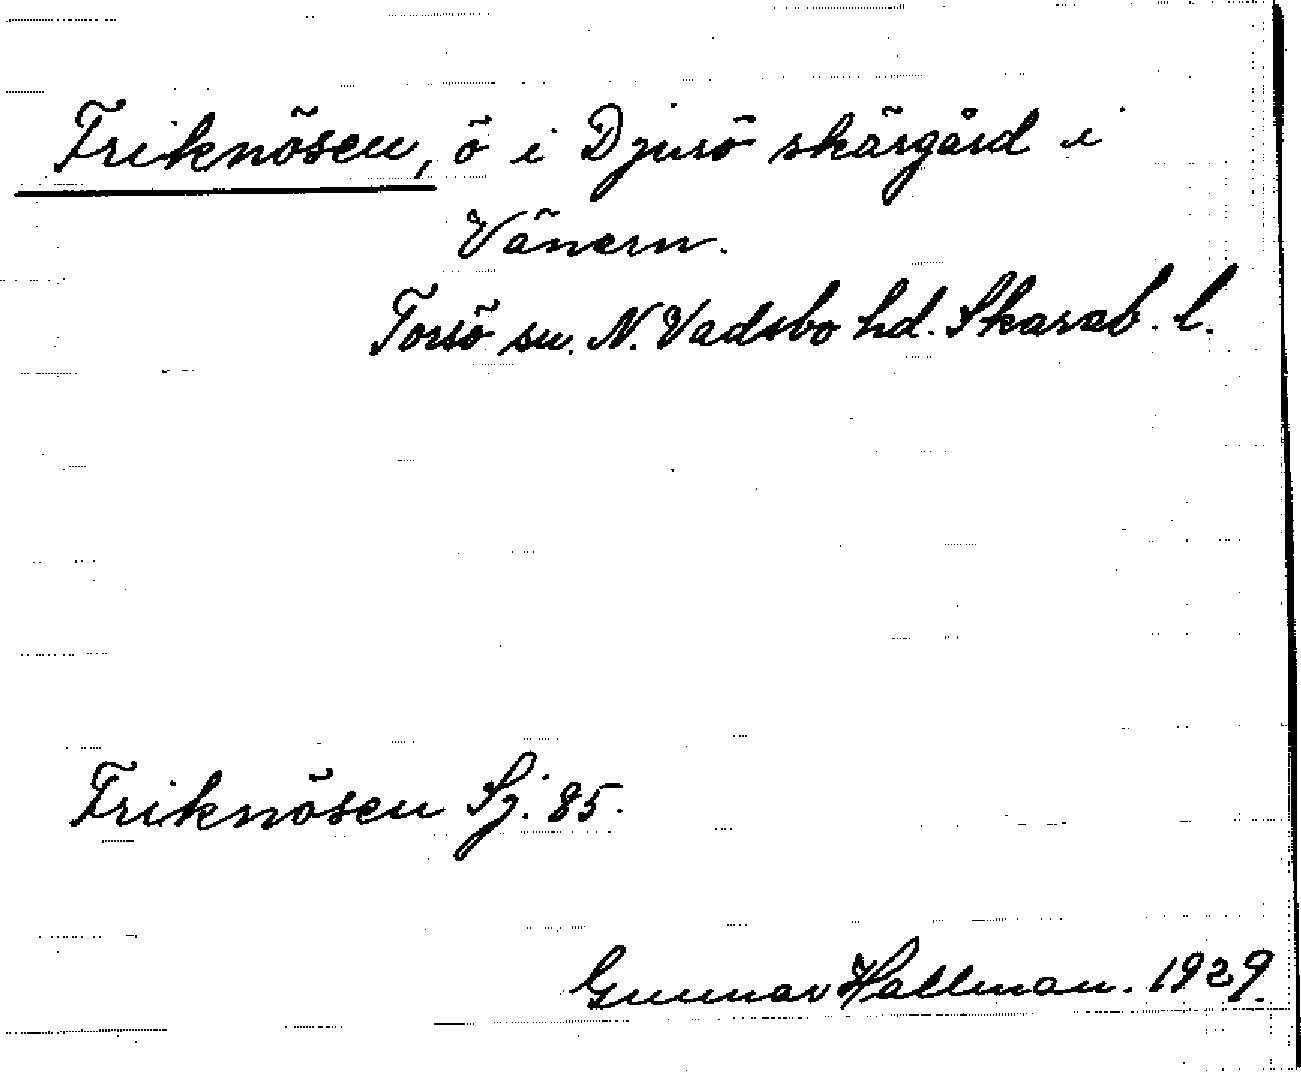 Friknösen, ö i Djurö skärgård i
Vänern.
Torsö sn. N. Vadsbo hd. Skarab. l.
Friknösen Sj. 85.
Gunnar Hallman. 1929.